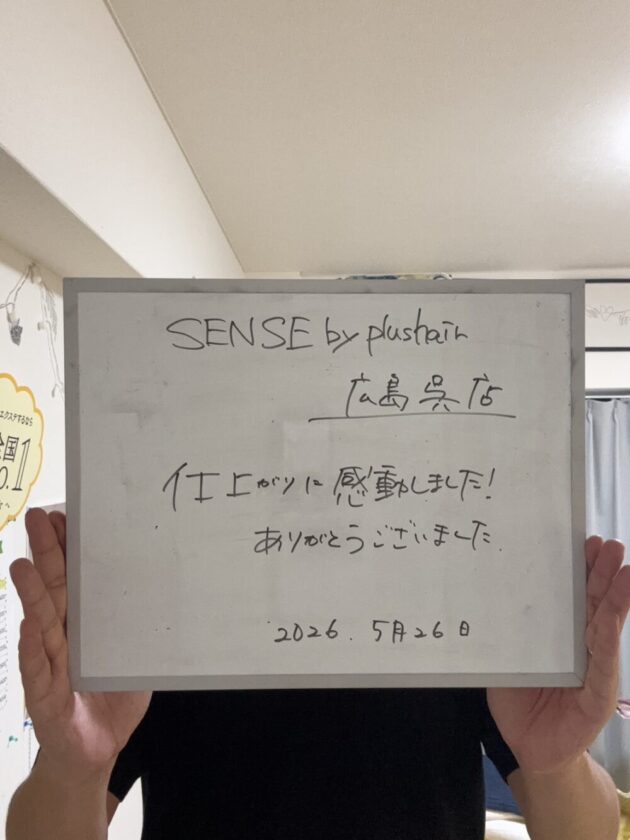 SENSE by plushair
広島呉店
仕上がりに感動しました!
ありがとうございました
2026. 5月26日
エクステするなら
全国